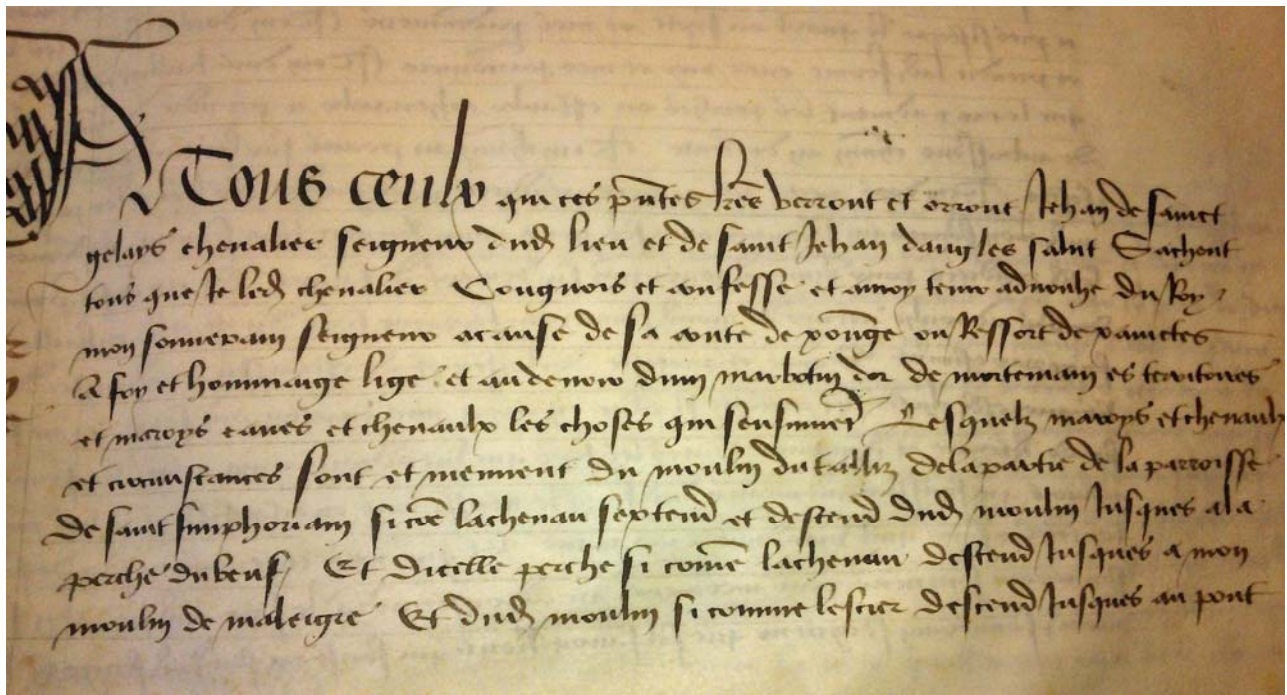 A Tous ceulx qui ces pntes lres verront et orront Jehan de sainct
gelays chevalier seigneur dud lieu et de saint Jehan dangles salut Sachent
tous que Je led chevalier Congnois et confesse et advoy tenir du Roy
mon souverain seigneur a cause de sa conte de xonge ou Ressort de xainctes
A foy et hommaige lige et au devoir dun marbotin dor de es territoires
et maroys eaues et chenaulx les choses qui sensuivet Lesquelz maroys et chenaulx
et circunstances sont et du moulin de la partie de la parroisse
de saint simphoriam si coe lachenau sextend et descend dud moulin Jusques a la
perche du beuf Et dicelle perche si come lachenau descend Jusques a mon
moulin de maleigre Et dud moulin si comme lescier descend Jusques au pont